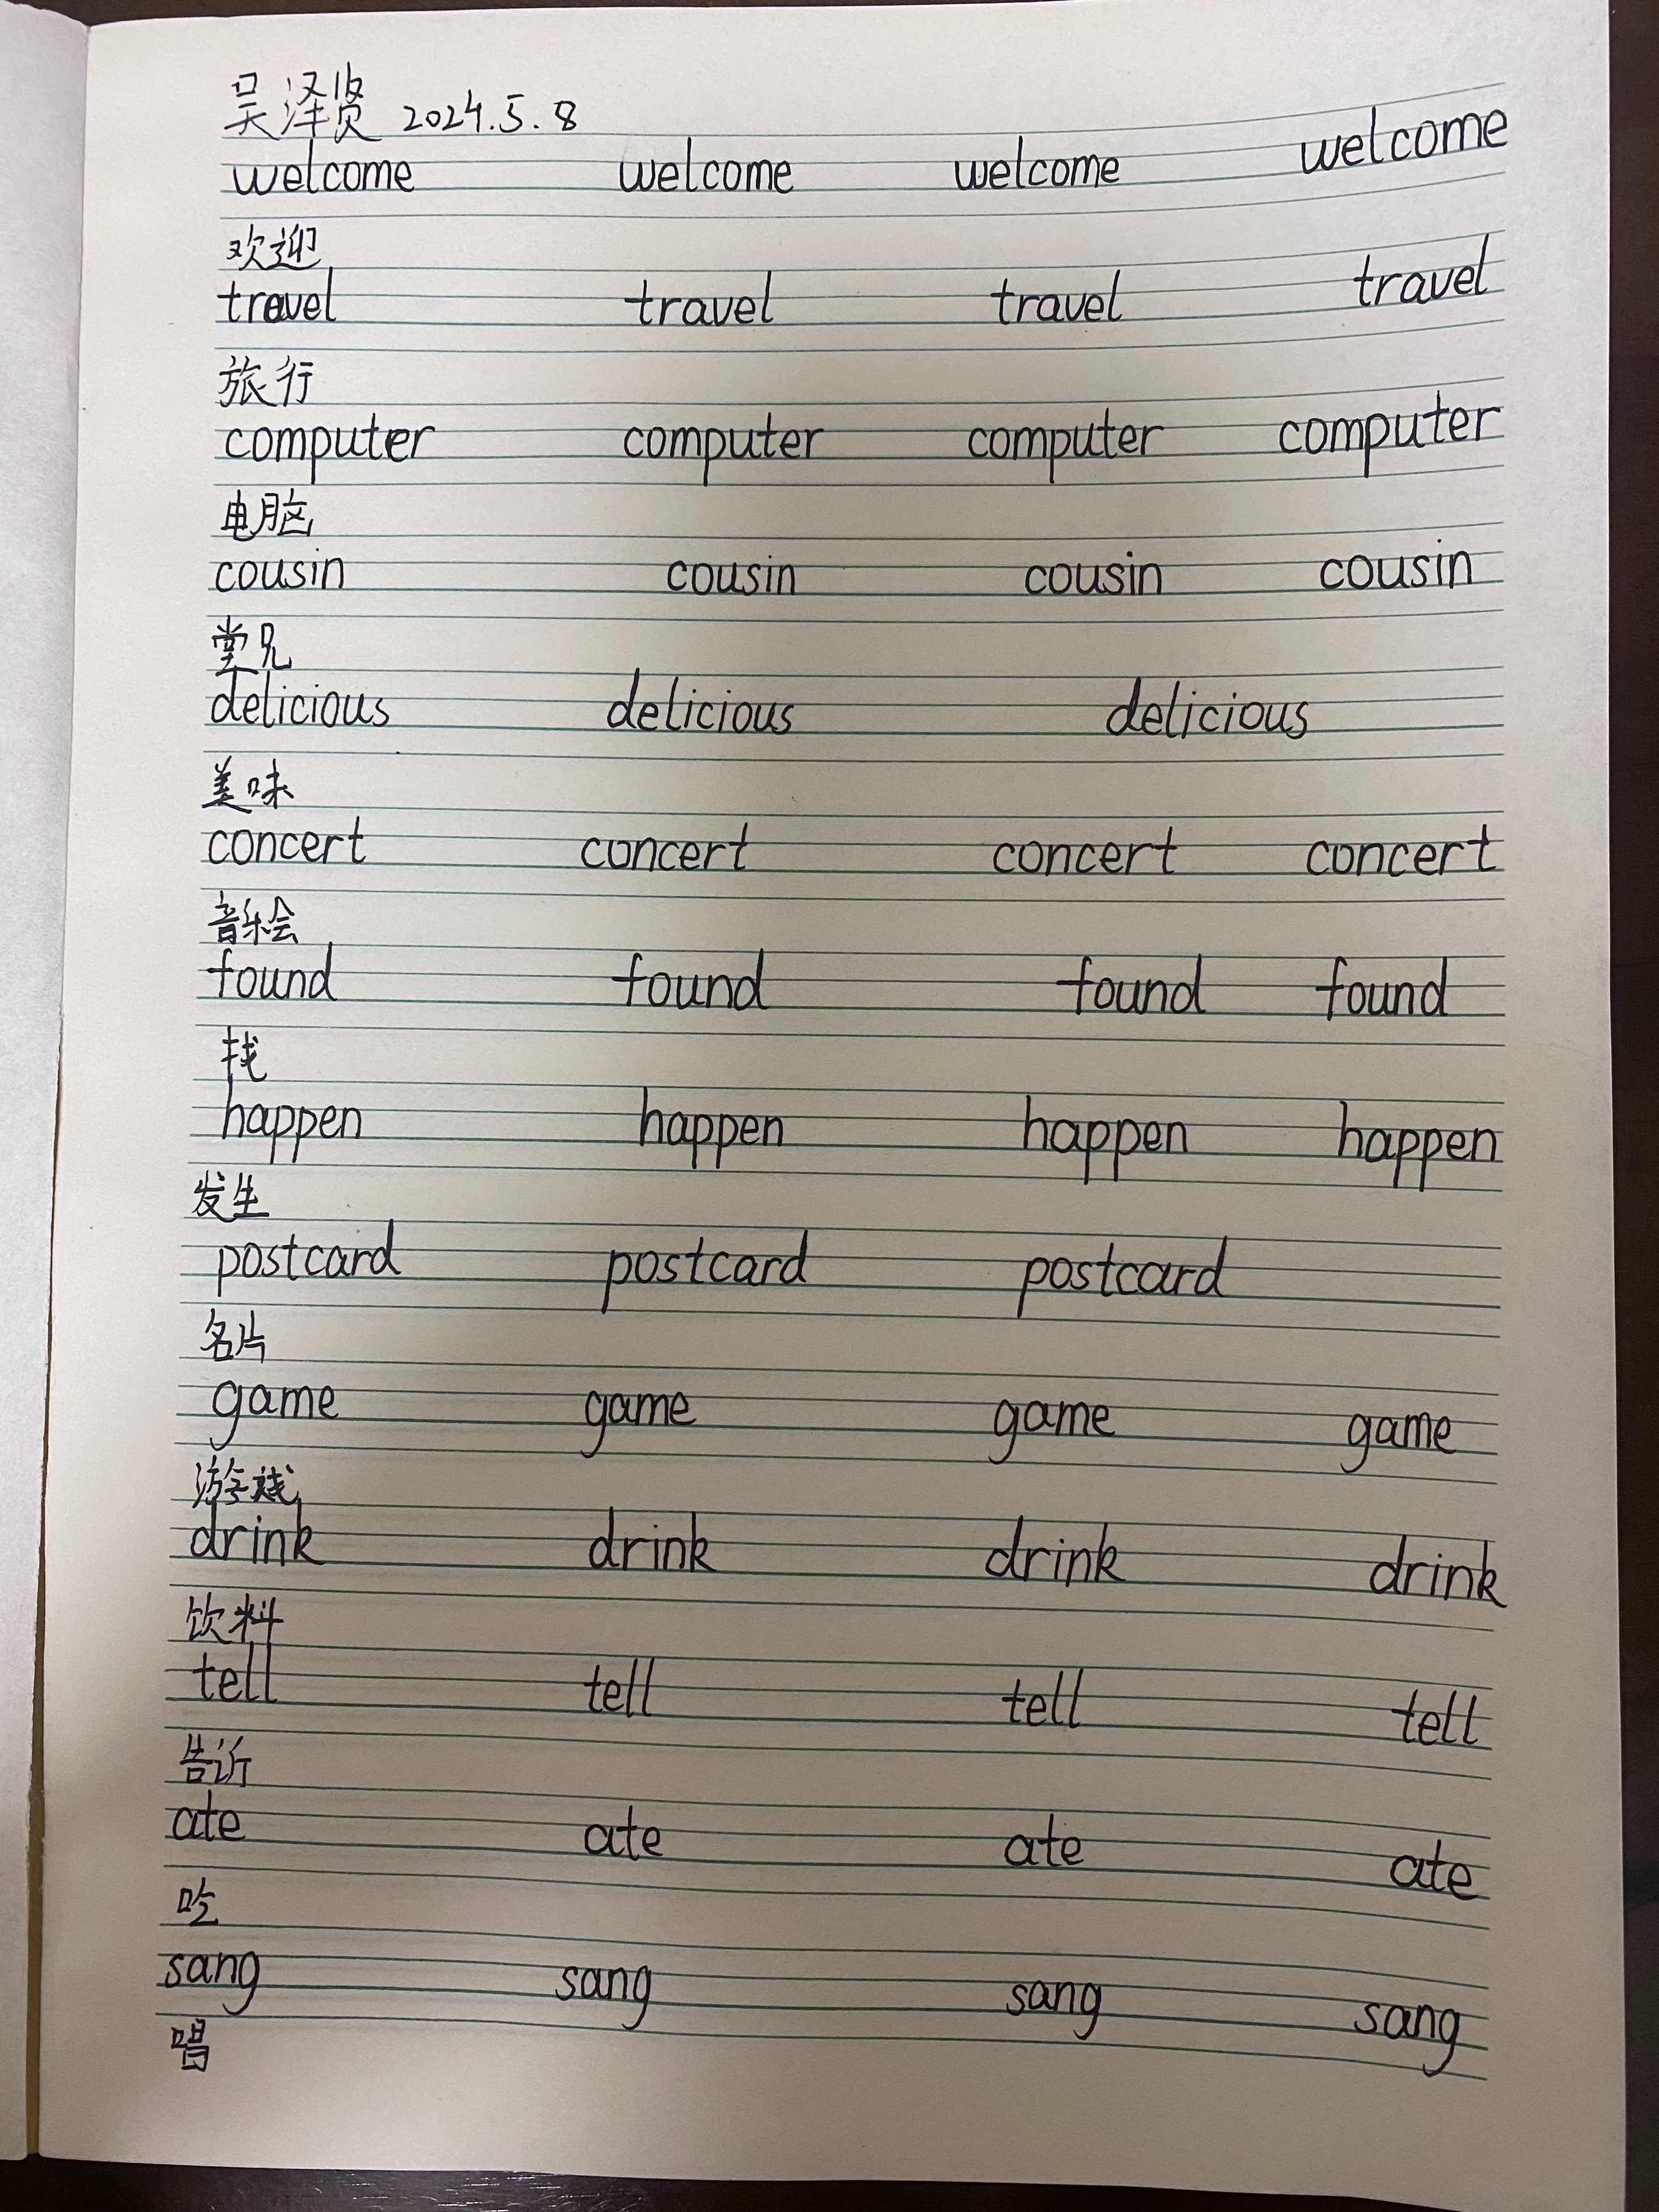 吴泽贤 2024.5.8
welcome welcome welcome welcome
欢迎
travel travel travel travel
旅行
computer computer computer computer
电脑
cousin cousin cousin cousin
堂兄
delicious delicious delicious
美味
concert concert concert concert
音乐会
found found found found
找
happen happen happen happen
发生
postcard postcard postcard
名片
game game game game
游戏
drink drink drink drink
饮料
tell tell tell tell
告诉
ate ate ate ate
吃
sang sang sang sang
唱